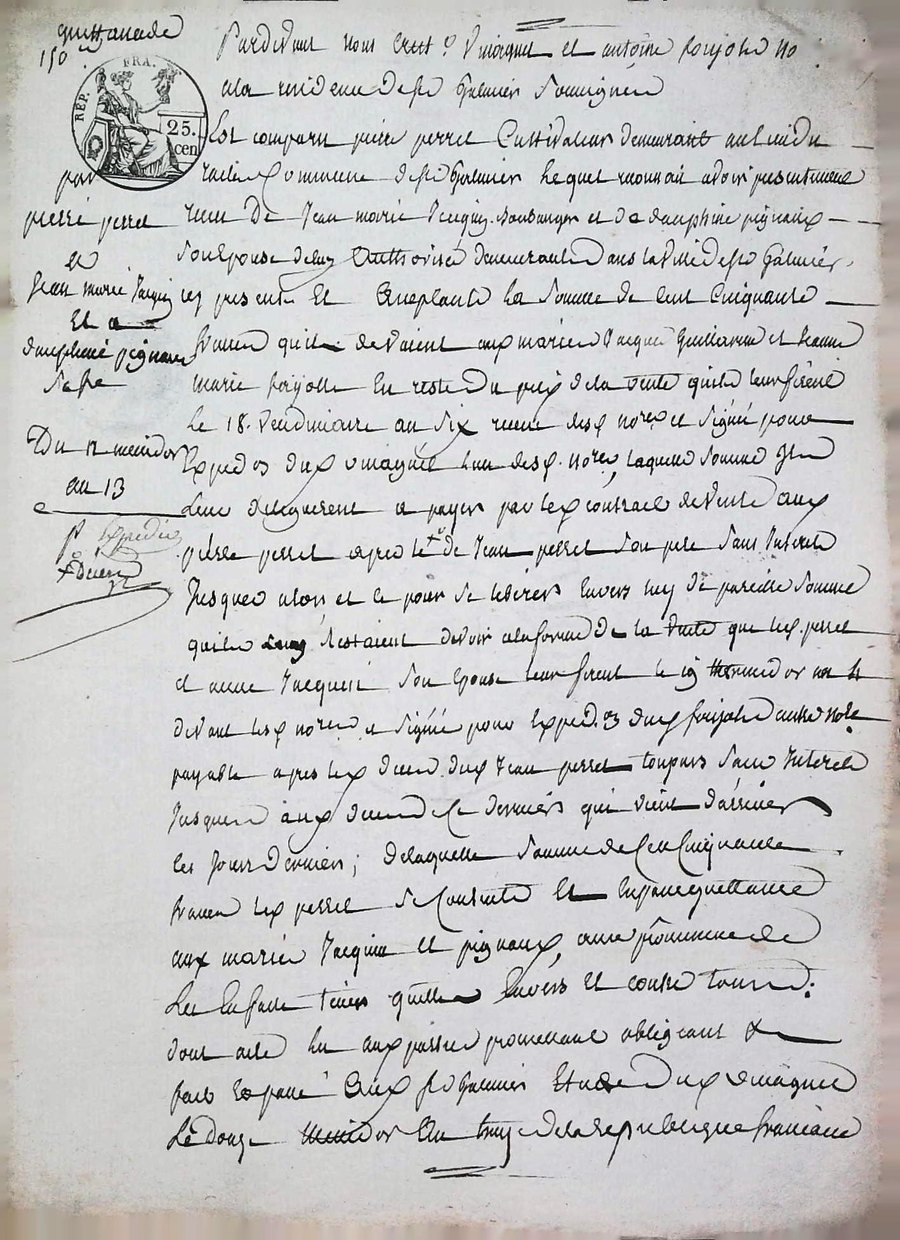 quittance de
150
REP. FRA.
25.
cen
par
pierre perret
et
Jean marie Jacquin
Et a
dauphine pignaux
Sa fe
Du 12 messidor
an 13
pr Expedié
Pardevant Nous et antoine forjolle no
a la residence de st Galmier Soussignes
Est comparu pierre perret Cultivateur demeurant au lieu du
Commune de st Galmier Lequel reconnait avoir presentement
recu de Jean marie Jacquin boulanger et de dauphine pignaux
Son epouse de luy Authorisée demeurants dans la ville de st Galmier
icy presents Et Acceptants la Somme de Cent Cinquante
francs qu'ils devaient aux maries Jacques Guillaume et Jeanne
marie forjolle En reste du prix de la vente qu'ils leur firent
Le 18 Vendemiaire an Six recue des no.res et Signé pour
Exped.on l'un des no.res, laquelle Somme Ils
Leur deleguerent a payer par le contract de vente aux
pierre perret apres le de Jean perret Son pere Sans Interets
Jusques alors et ce pour Se liberer Envers luy de pareille Somme
qu'ils luy restaient devoir a la forme de la vente que les perret
et anne Jacquet Son Epouse leur firent le 19 thermidor an 4
devant les no.res et Signée pour Exped.on forjolle autre No.re
payable apres le deces du Jean perret toujours Sans Interets
Jusques au deces de ce dernier qui vient d'arriver
ces Jours derniers; de laquelle Somme de Cent Cinquante
francs le perret Se Contente Et En passe quittance
aux maries Jacquin et pignaux, avec promesse de
Les En faire tenir quittes Envers Et contre tous:
dont acte lu aux parties promettant obligeant &
fait Et passé Aux st Galmier Etude du
Le douze Messidor An treize de la republique francaise